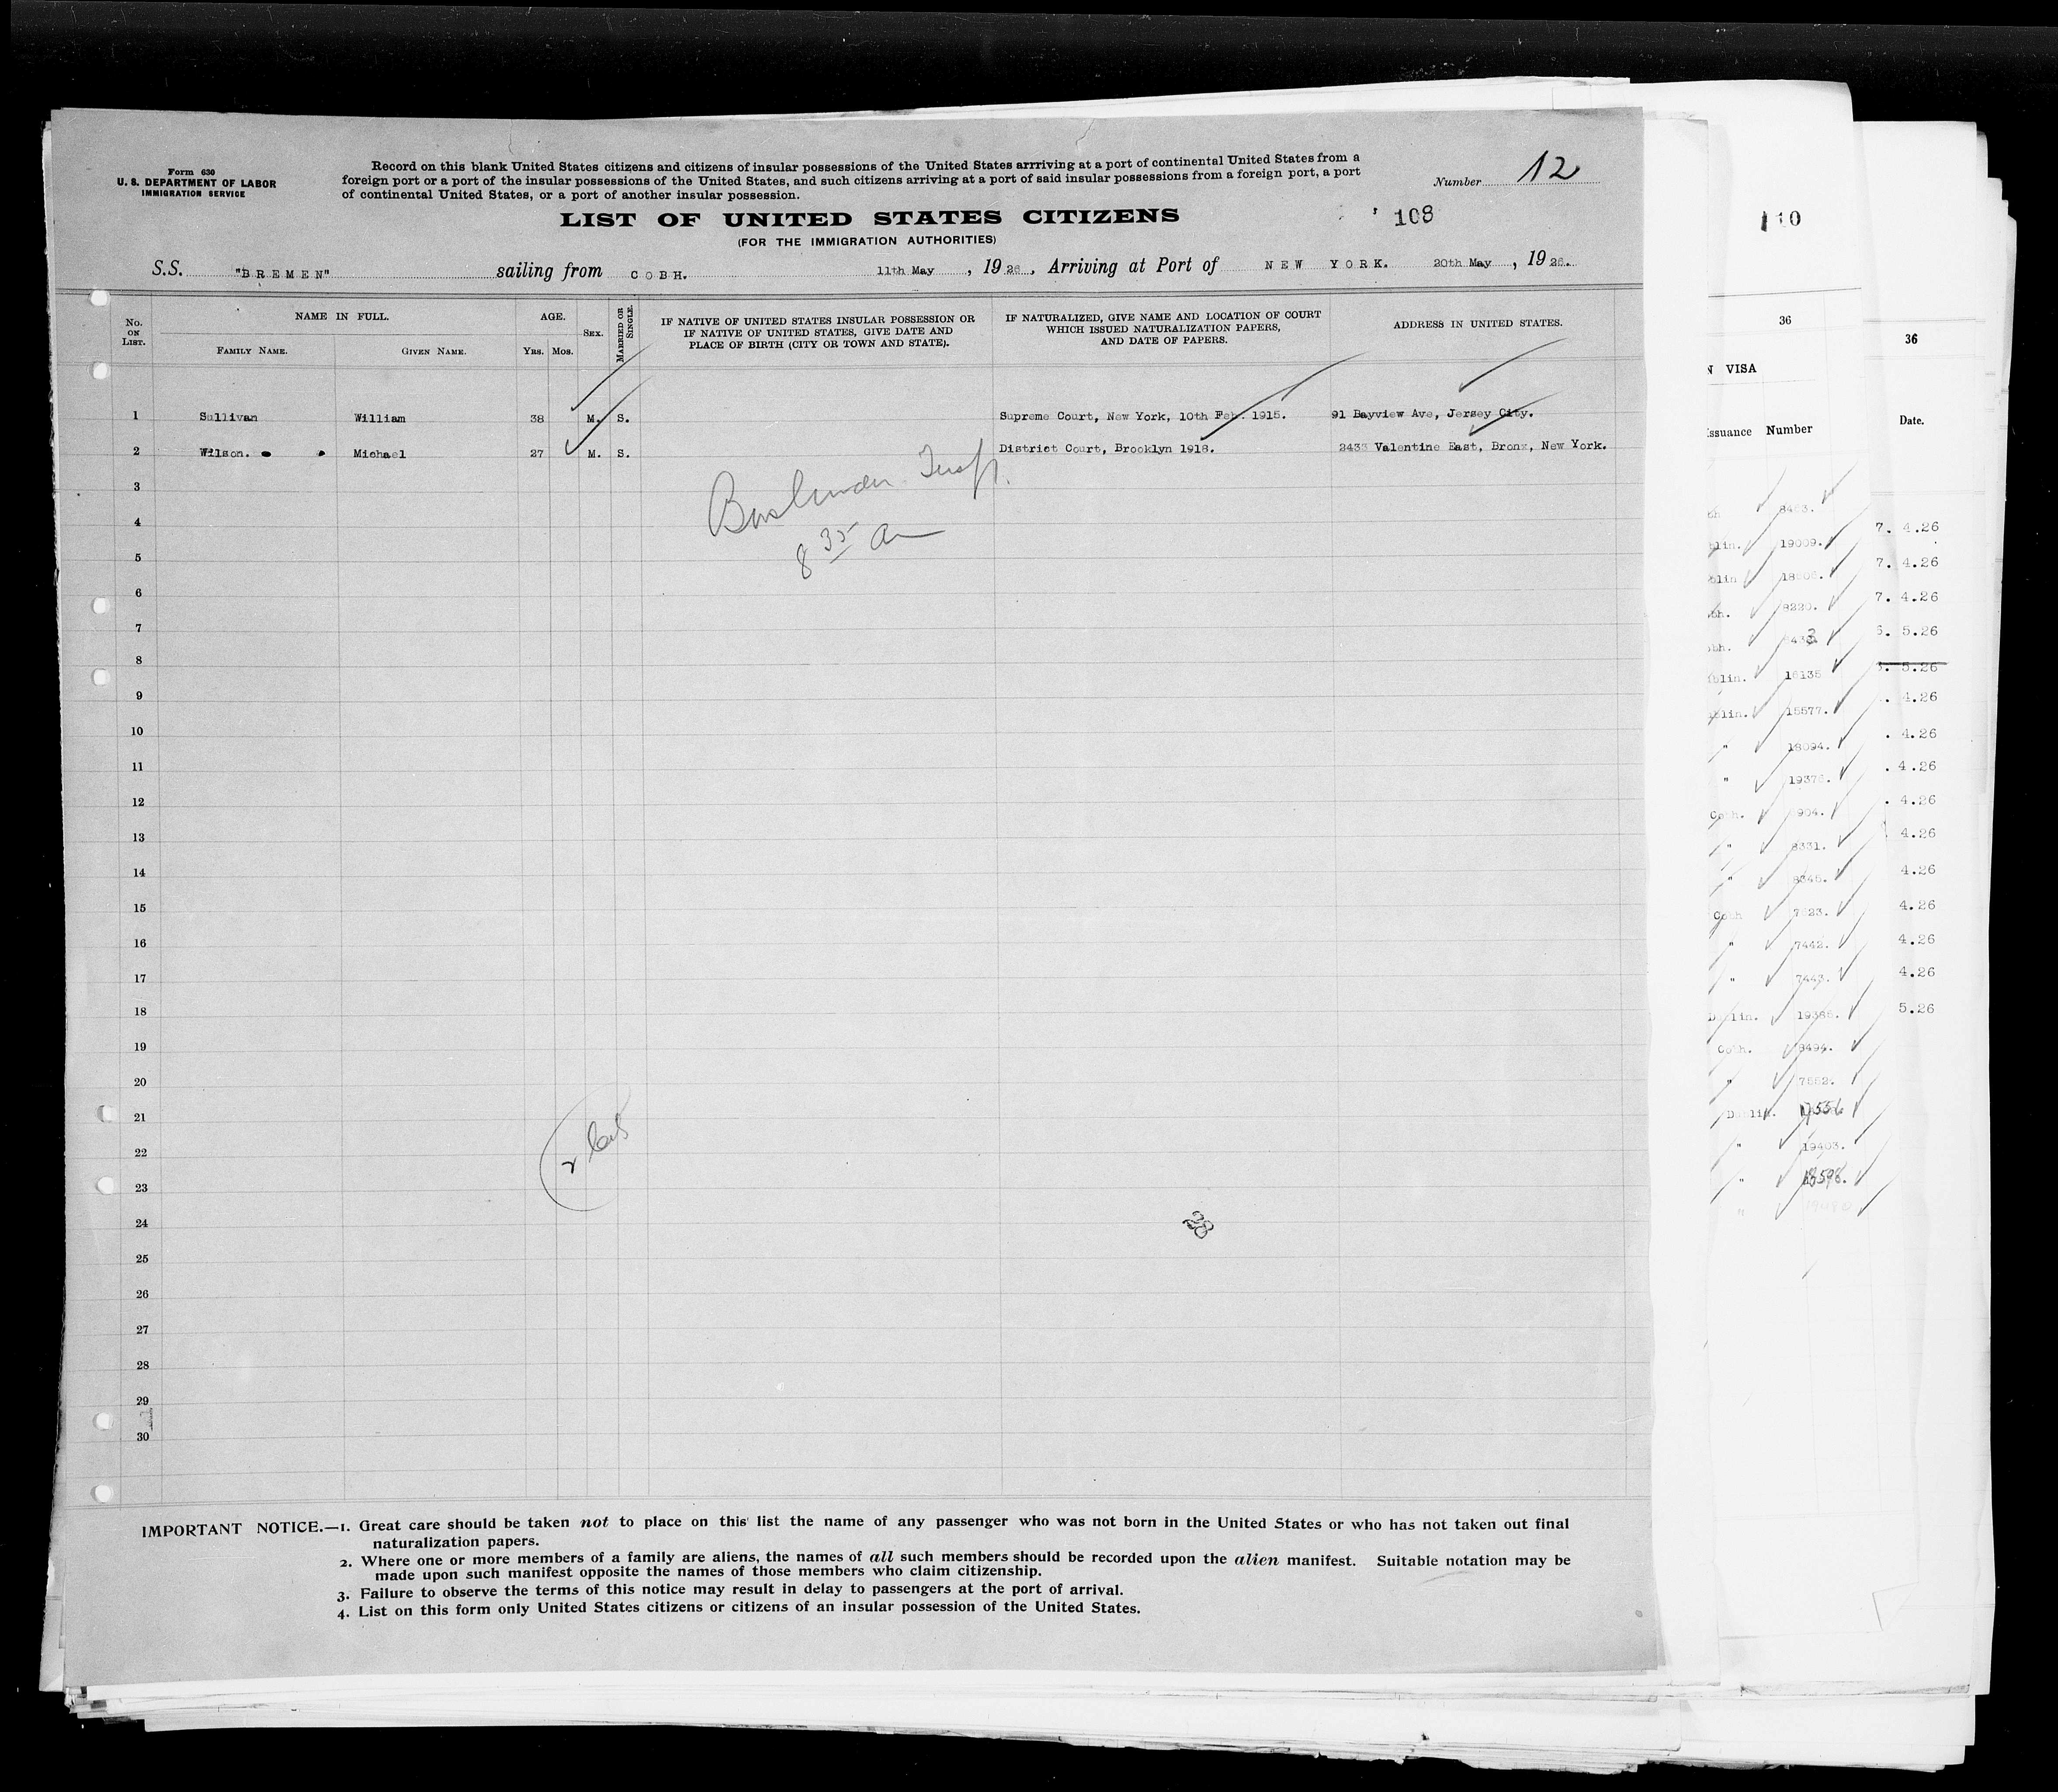 Form 630
U. S. DEPARTMENT OF LABOR
IMMIGRATION SERVICE
Record on this blank United States citizens and citizens of insular possessions of the United States arrriving at a port of continental United States from a
foreign port or a port of the insular possessions of the United States, and such citizens arriving at a port of said insular possessions from a foreign port, a port
of continental United States, or a port of another insular possession.
Number 12
LIST OF UNITED STATES CITIZENS
108
(FOR THE IMMIGRATION AUTHORITIES)
S.S. "BREMEN" sailing from COBH. 11th May, 1926, Arriving at Port of NEW YORK. 20th May, 1926.
No. ON LIST.
NAME IN FULL.
FAMILY NAME. GIVEN NAME.
AGE.
YRS. MOS.
SEX.
MARRIED OR SINGLE.
IF NATIVE OF UNITED STATES INSULAR POSSESSION OR
IF NATIVE OF UNITED STATES, GIVE DATE AND
PLACE OF BIRTH (CITY OR TOWN AND STATE).
IF NATURALIZED, GIVE NAME AND LOCATION OF COURT
WHICH ISSUED NATURALIZATION PAPERS,
AND DATE OF PAPERS.
ADDRESS IN UNITED STATES.
1 Sullivan William 38 M. S. Supreme Court, New York, 10th Feb. 1915. 91 Bayview Ave, Jersey City.
2 Wilson. Michael 27 M. S. District Court, Brooklyn 1918. 2433 Valentine East, Bronx, New York.
3
4
8 35 am
5
6
7
8
9
10
11
12
13
14
15
16
17
18
19
20
21
22
23
24
28
25
26
27
28
29
30
IMPORTANT NOTICE.—1. Great care should be taken not to place on this list the name of any passenger who was not born in the United States or who has not taken out final
naturalization papers.
2. Where one or more members of a family are aliens, the names of all such members should be recorded upon the alien manifest. Suitable notation may be
made upon such manifest opposite the names of those members who claim citizenship.
3. Failure to observe the terms of this notice may result in delay to passengers at the port of arrival.
4. List on this form only United States citizens or citizens of an insular possession of the United States.
110
36
VISA
Issuance Number
19009.
8220.
16135
15577.
18094.
19376.
904.
8331.
8345.
7442.
7443.
Dublin. 19386.
Cobh. 8494.
7552.
Dublin.
19403.
36
Date.
7. 4.26
7. 4.26
7. 4.26
5.26
5.26
4.26
4.26
4.26
4.26
4.26
4.26
4.26
4.26
4.26
5.26